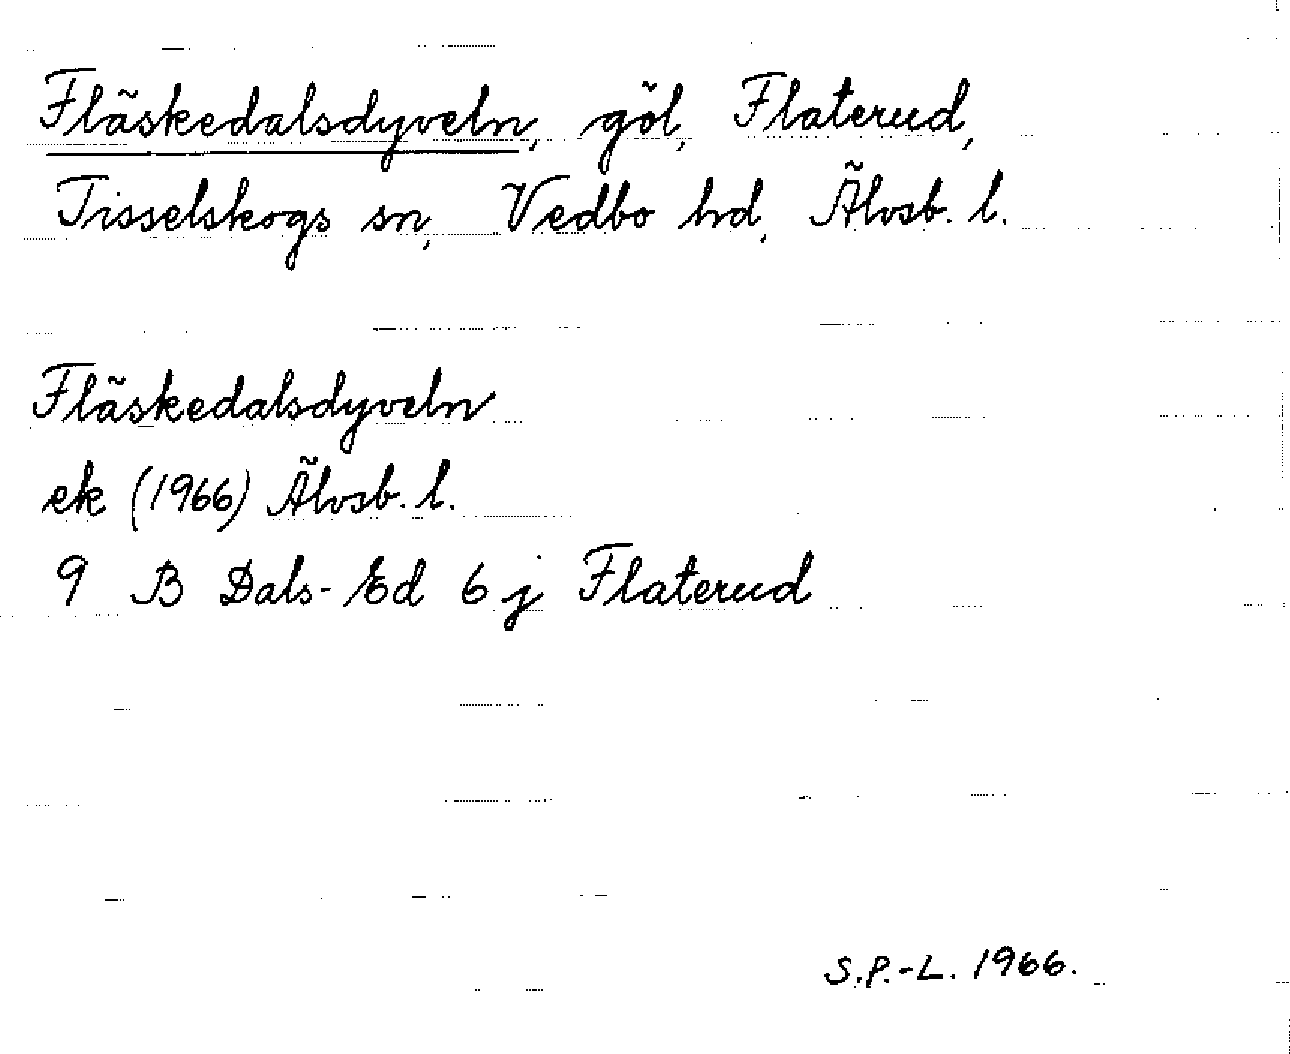 Fläskedalsdyveln, göl, Flaterud,
Tisselskogs sn, Vedbo hd, Älvsb. l.
Fläskedalsdyveln
ek (1966) Älvsb. l.
9 B Dals-Ed 6 j Flaterud
S.P.-L. 1966.